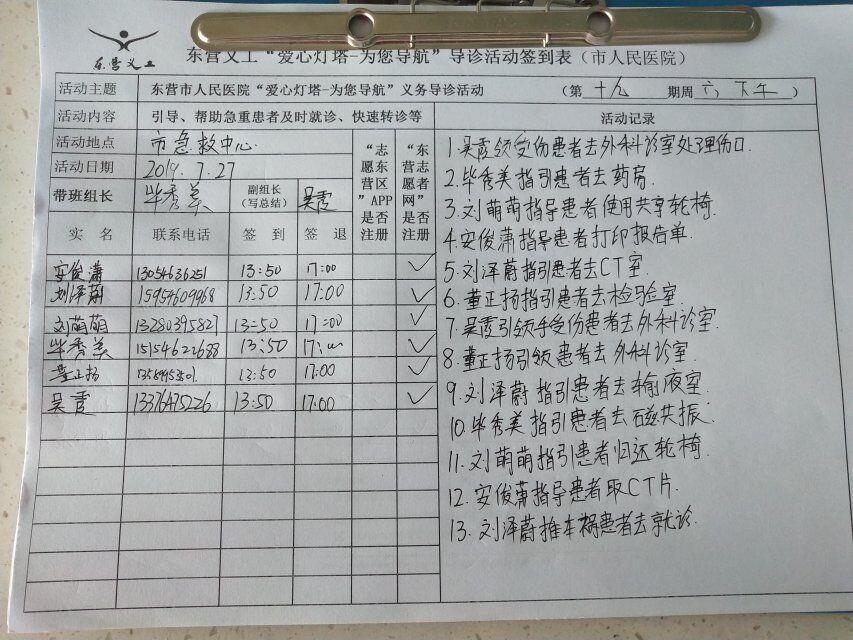 东营义工
东营义工“爱心灯塔-为您导航”导诊活动签到表（市人民医院）
活动主题 东营市人民医院“爱心灯塔-为您导航”义务导诊活动 （第 十九 期周 六 下午 ）
活动内容 引导、帮助急重患者及时就诊、快速转诊等
活动地点 市急救中心
活动日期 2019.7.27
带班组长 毕秀美 副组长（写总结） 吴霞
“志愿东营区”APP是否注册
“东营志愿者网”是否注册
实 名 联系电话 签 到 签 退
安俊潇 13054636251 13:50 17:00 ✓
刘泽蔚 15954609968 13:50 17:00 ✓
刘萌萌 13280395827 13:50 17:00 ✓
毕秀美 15154622688 13:50 17:00 ✓
董正扬 13:50 17:00 ✓
吴霞 13376475226 13:50 17:00 ✓
活动记录
1.吴霞领受伤患者去外科诊室处理伤口
2.毕秀美指引患者去药房
3.刘萌萌指导患者使用共享轮椅.
4.安俊潇指导患者打印报告单
5.刘泽蔚指引患者去CT室
6.董正扬指引患者去检验室
7.吴霞引领手受伤患者去外科诊室
8.董正扬引领患者去外科诊室
9.刘泽蔚指引患者去输液室
10.毕秀美指引患者去磁共振.
11.刘萌萌指引患者归还轮椅
12.安俊潇指导患者取CT片.
13.刘泽蔚推车祸患者去就诊.